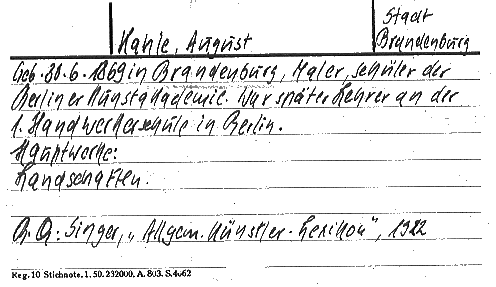 Stadt
Hahle, August Brandenburg
Geb. 30.6.1869 in Brandenburg, Maler, Schüler der
Berliner Kunstakademie. War später Lehrer an der
1. Handwerkerschule in Berlin.
Hauptwerke:
Landschaften.
Singer, „Allgem. Künstler-Lexikon", 1922
Reg. 10 Stichnote. 1. 50. 232000. A. 803. S. 4062